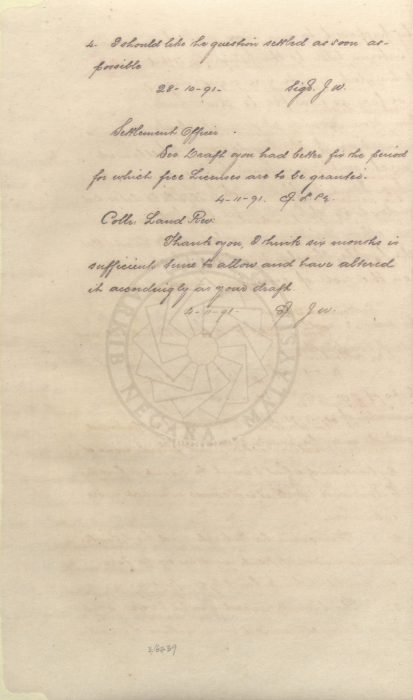 4. I should like the question settled as soon as
possible
28-10-91. Sigd. J W.
Settlement Officer.
See Draft you had better fix the period
for which free Licenses are to be granted.
4-11-91.
Collr. Land Rev.
Thank you, I think six months is
sufficient time to allow and have altered
it accordingly in your draft
4-11-91. J W.
NEGARA MALAYSIA